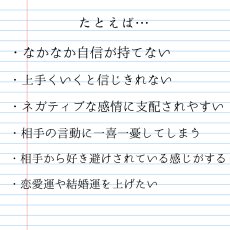 たとえば…
・なかなか自信が持てない
・上手くいくと信じきれない
・ネガティブな感情に支配されやすい
・相手の言動に一喜一憂してしまう
・相手から好き避けされている感じがする
・恋愛運や結婚運を上げたい